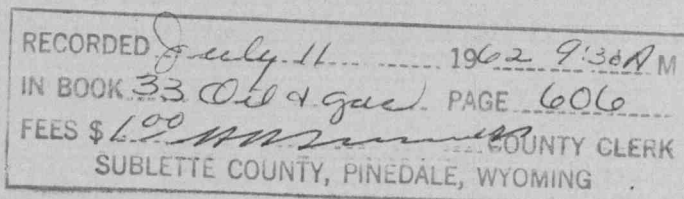 RECORDED July 11 1962 9:30 A M
IN BOOK 33 Oil & Gas PAGE 606
FEES $ 1.00 COUNTY CLERK
SUBLETTE COUNTY, PINEDALE, WYOMING